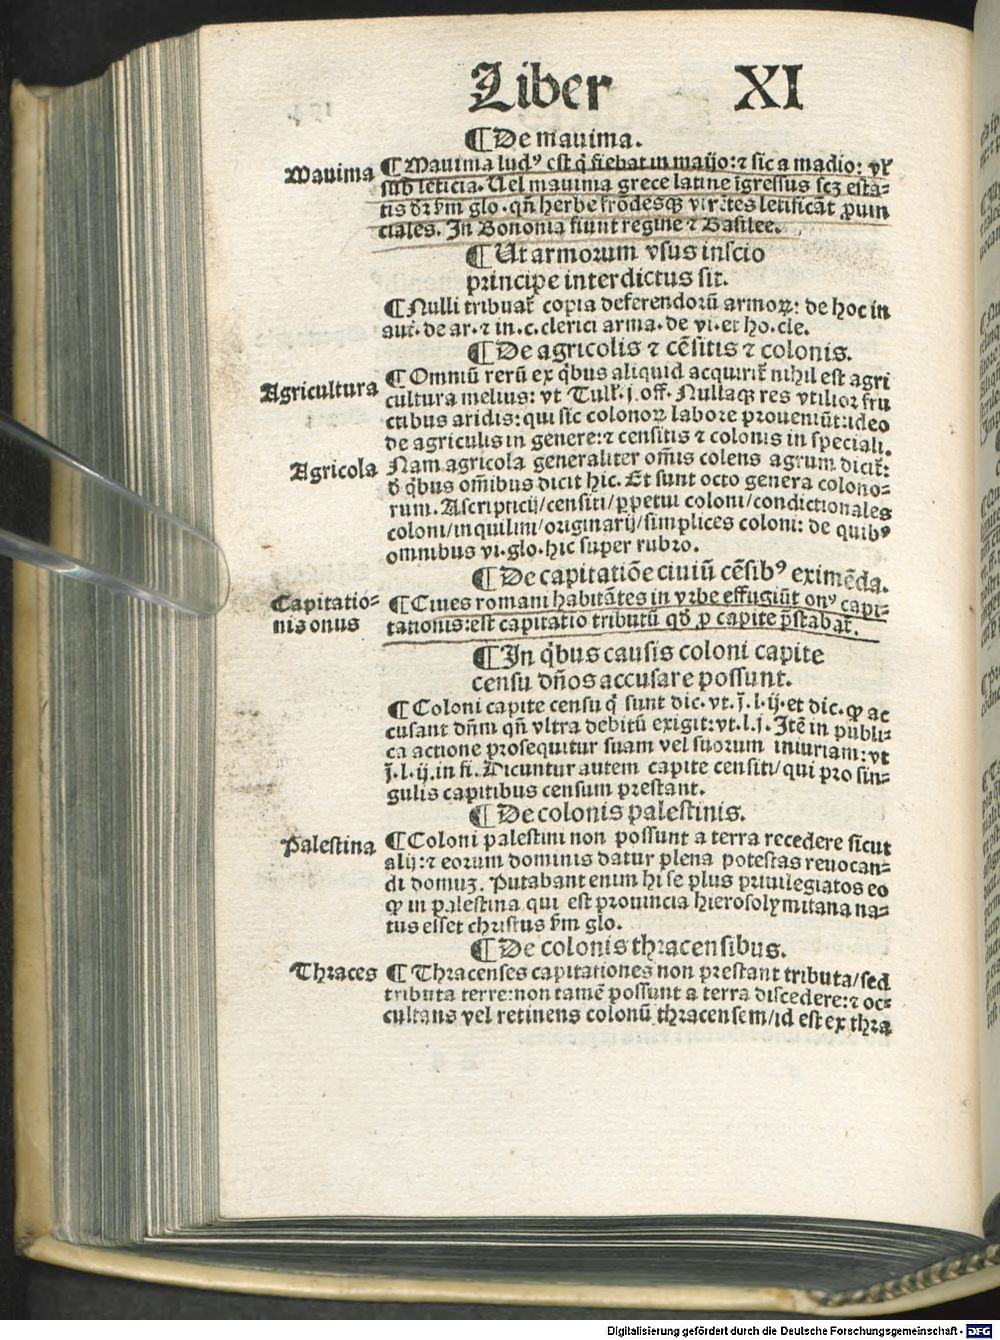 Liber XI
¶ De mauima.
Mauima
¶ Mauima ludꝰ est q̃ fiebat in maijo: ⁊ sic a madio: vł
sub leticia. Uel mauima grece latine īgressus scꝫ esta-
tis dr̃ ẜm glo. qñ herbe frõdesqꝫ vir̃: tes letificãt ꝓuin
ciales. In Bononia fiunt regine ⁊ Basilee.
¶ Ut armorum vsus inscio
principe interdictus sit.
¶ Nulli tribuat̃ copia deferendorũ armoꝝ: de hoc in
aut̃. de ar. ⁊ in. c. clerici arma. de vi. et ho. cle.
¶ De agricolis ⁊ cẽsitis ⁊ colonis.
Agricultura
¶ Omniũ rerũ ex q̃bus aliquid acquirit̃ nihil est agri
cultura melius: vt Tull̃. j. off. Nullaqꝫ res vtilior fru
ctibus aridis: qui sic colonoꝝ labore proueniũt: ideo
de agriculis in genere: ⁊ censitis ⁊ colonis in speciali.
Agricola
Nam agricola generaliter om̃is colens agrum dicit̃:
d̃ q̃bus om̃ibus dicit hic. Et sunt octo genera colono-
rum. Ascripticij/censiti/ꝑpetui coloni/condictionales
coloni/inquilini/originarij/simplices coloni: de quibꝰ
omnibus vi. glo. hic super rubro.
¶ De capitatiõe ciuiũ cẽsibꝰ eximẽda.
Capitatio-
nis onus
¶ Ciues romani habitãtes in vrbe effugiũt onꝰ capi-
tationis: est capitatio tributũ qđ ꝓ capite p̃stabat̃.
¶ In q̃bus causis coloni capite
censu dños accusare possunt.
¶ Coloni capite censu q̃ sunt dic. vt. j̃. l. ij. et dic. ꝙ ac
cusant dñm qñ vltra debitũ exigit: vt. l. j. Itẽ in publi-
ca actione prosequitur suam vel suorum iniuriam: vt
j̃. l. ij. in fi. Dicuntur autem capite censiti/qui pro sin-
gulis capitibus censum prestant.
¶ De colonis palestinis.
Palestina
¶ Coloni palestini non possunt a terra recedere sicut
alij: ⁊ eorum dominis datur plena potestas reuocan-
di domuꝫ. Putabant enim hi se plus priuilegiatos eo
ꝙ in palestina qui est prouincia hierosolymitana na-
tus esset christus ẜm glo.
¶ De colonis thracensibus.
Thraces
¶ Thracenses capitationes non prestant tributa/sed
tributa terre: non tamẽ possunt a terra discedere: ⁊ oc-
cultans vel retinens colonũ thracensem/id est ex thra
Digitalisierung gefördert durch die Deutsche Forschungsgemeinschaft - DFG